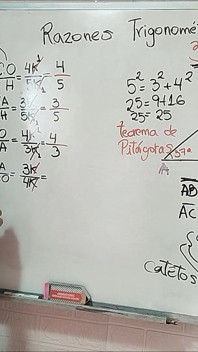 Razones Trigonomé
CO/H = 4K/5K = 4/5
A/H = 3K/5K = 3/5
O/A = 4K/3K = 4/3
A/O = 3K/4K =
5² = 3² + 4²
25 = 9+16
25 = 25
teorema de
Pitágoras
37°
A
AB
AC
Catetos